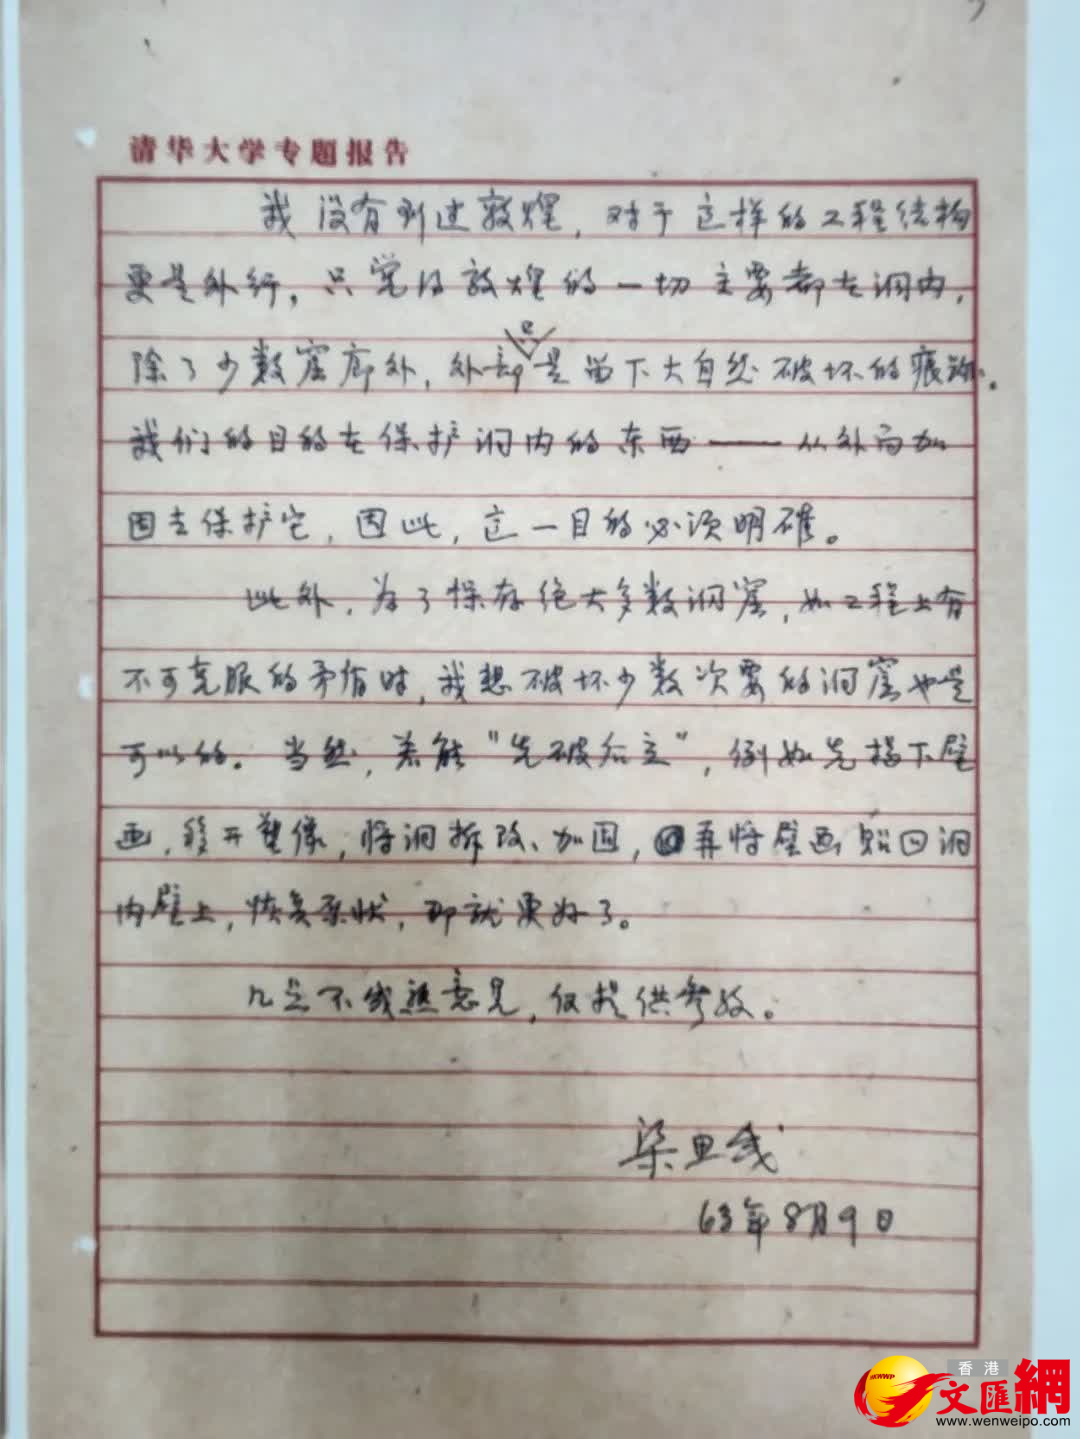 清华大学专题报告
我没有到过敦煌，对于这样的工程结构
更是外行，只觉得敦煌的一切主要都在洞内，
除了少数窟廊外，外部只是留下大自然破坏的痕跡。
我们的目的在保护洞内的东西——从外面加
固去保护它，因此，这一目的必须明确。
此外，为了保存绝大多数洞窟，如工程上有
不可克服的矛盾时，我想破坏少数次要的洞窟也是
可以的。当然，若能“先破后立”，例如先揭下壁
画，移开塑像，将洞拆改、加固，再将壁画贴回洞
内壁上，恢复原状，那就更好了。
几点不成熟意见，仅提供参考。
梁思成
63年8月9日
香港
文匯網
www.wenweipo.com